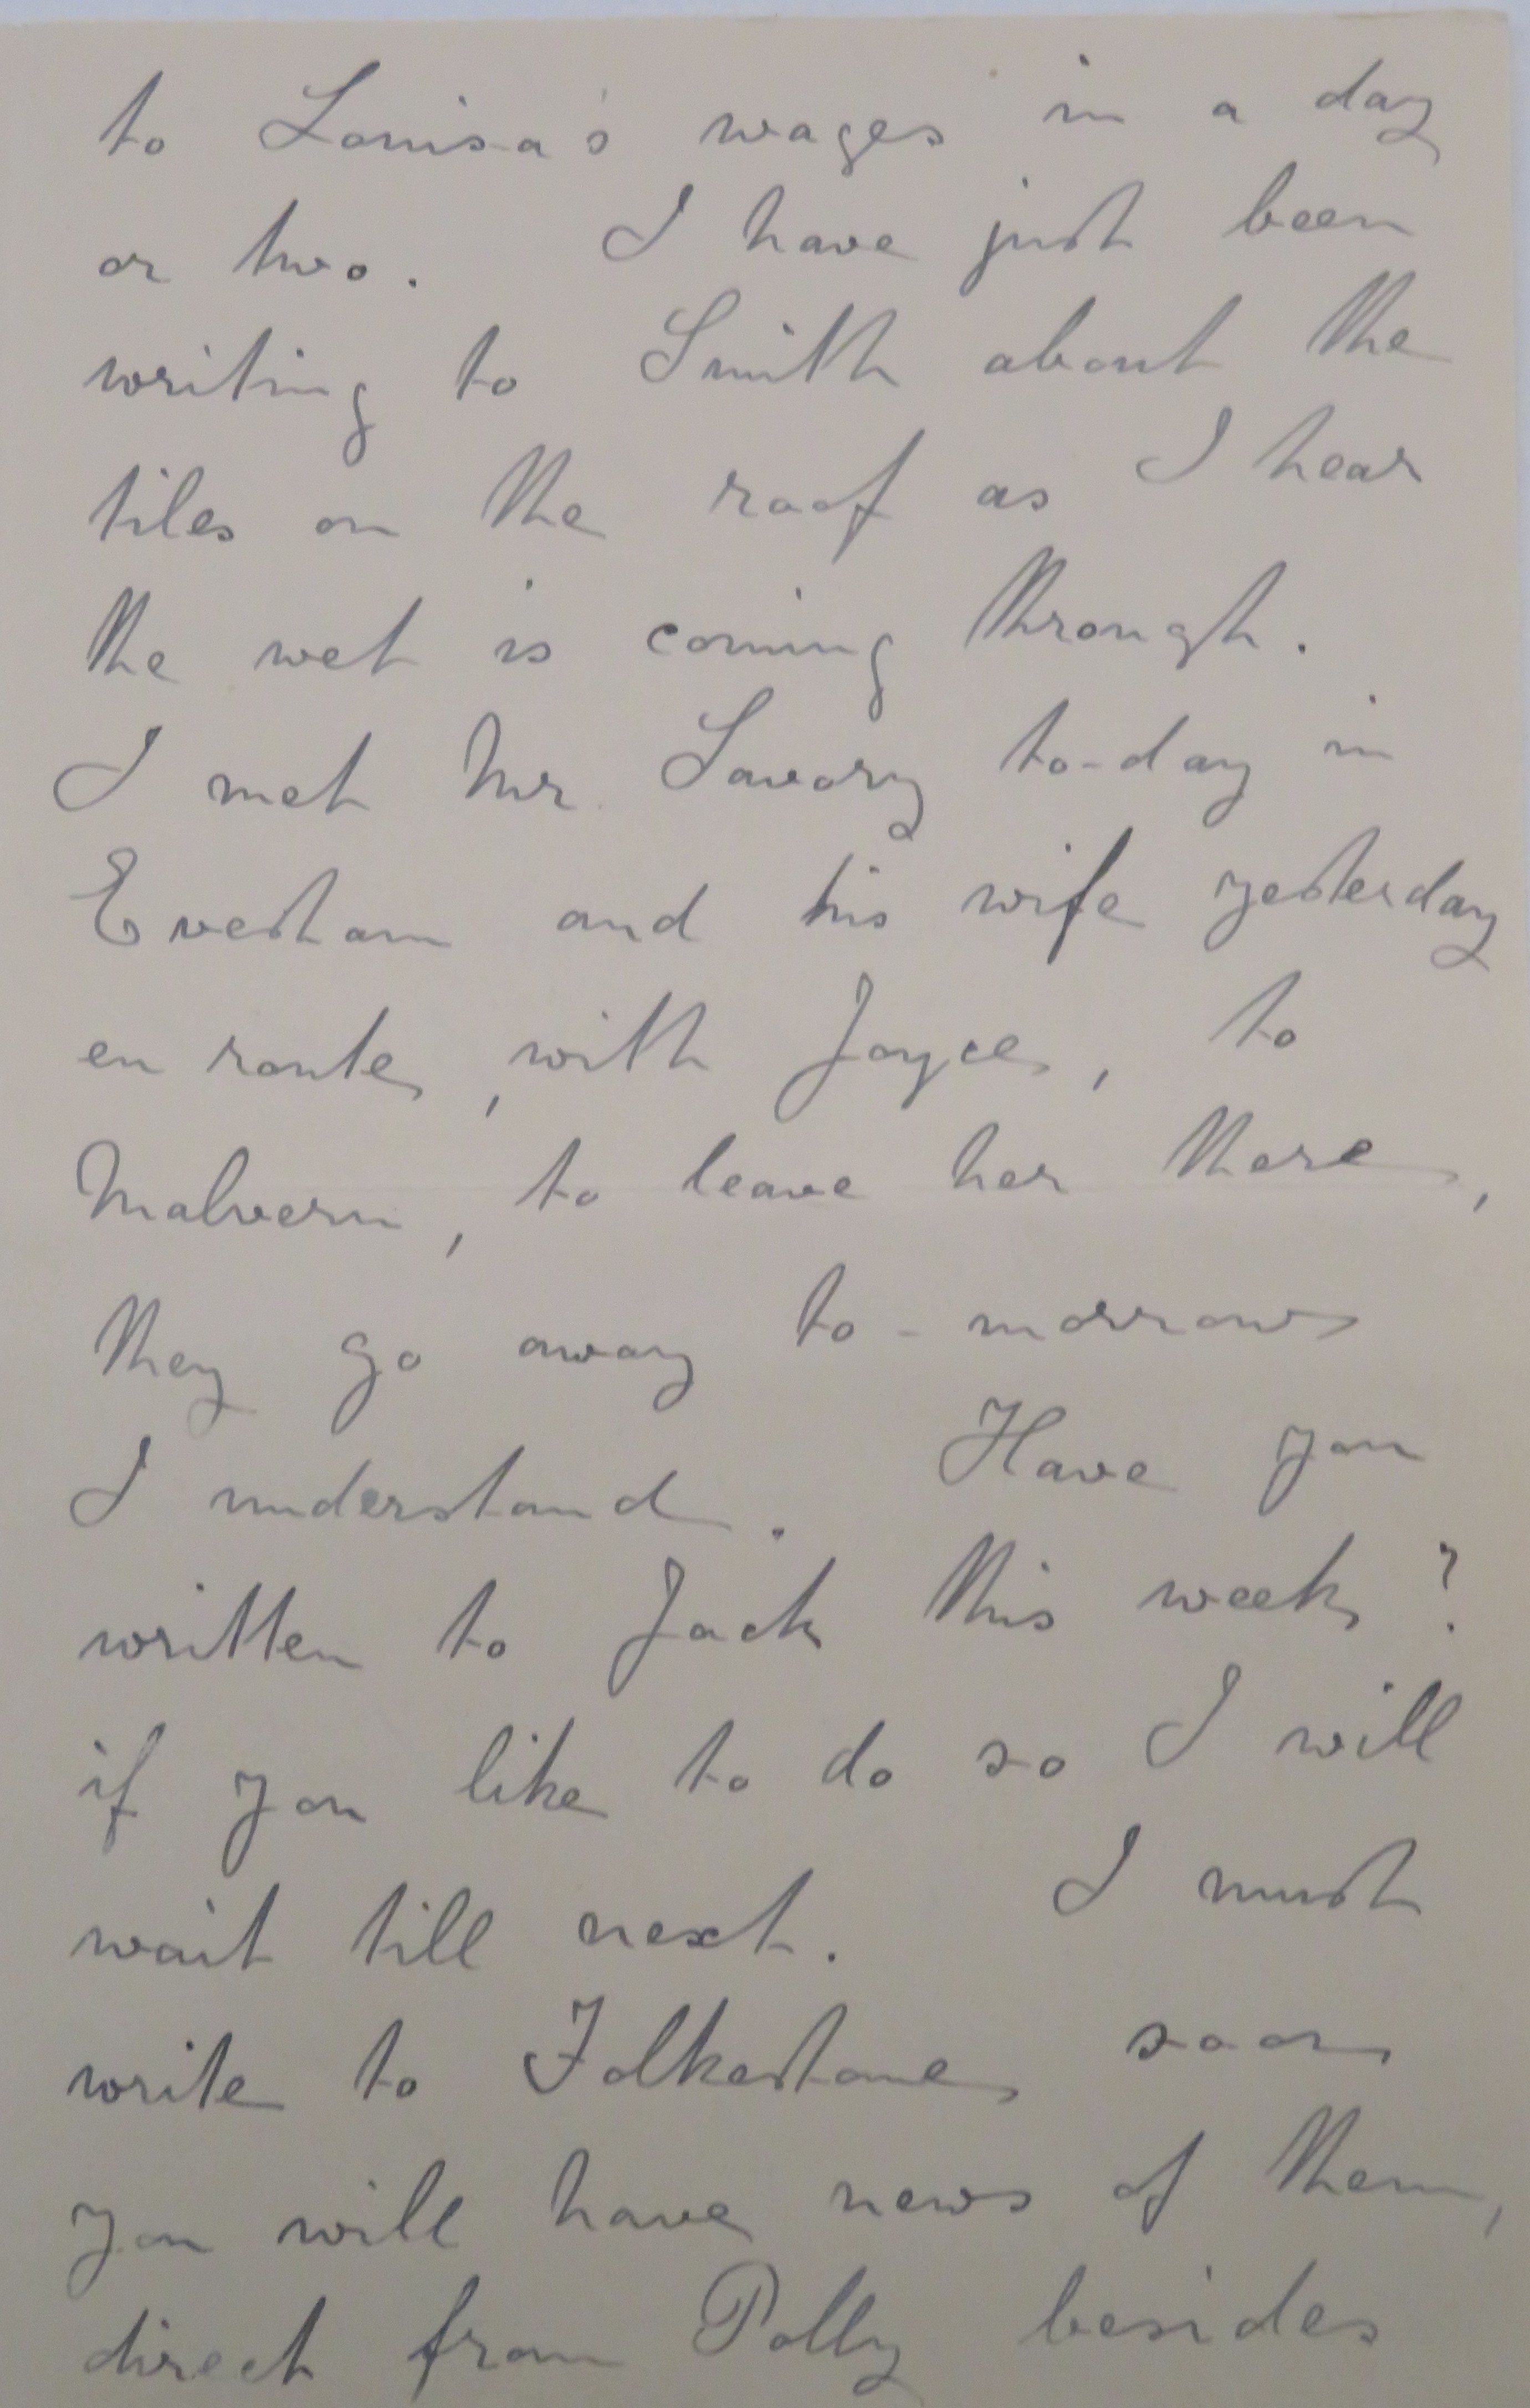 to Louisa's wages in a day
or two. I have just been
writing to Smith about the
tiles on the roof as I hear
the wet is coming through.
I met Mr Savory to-day in
Evesham and his wife yesterday
en route, with Joyce, to
Malvern, to leave her there,
they go away to-morrow
I understand. Have you
written to Jack this week?
if you like to do so I will
wait till next. I must
write to Folkestone soon
you will have news of them,
direct from Polly besides